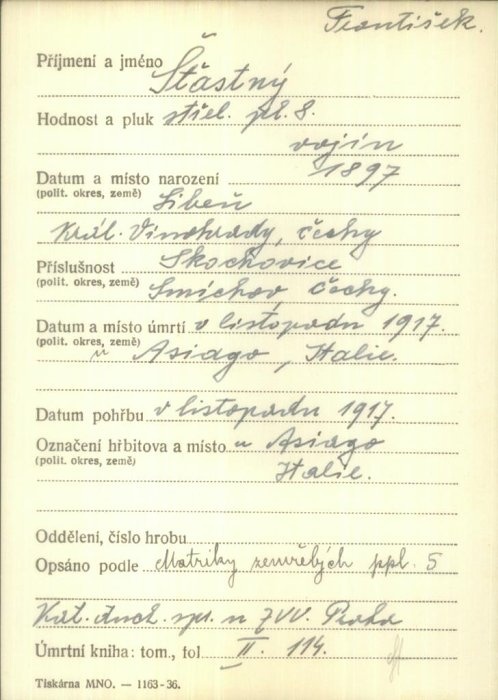 František.
Příjmení a jméno Šťastný
Hodnost a pluk střel. pl. 8.
vojín
Datum a místo narození 1897
(polit. okres, země) Libeň
Král. Vinohrady, Čechy
Příslušnost Skochovice
(polit. okres, země) Smíchov Čechy.
Datum a místo úmrtí v listopadu 1917.
(polit. okres, země) u Asiago, Italie.
Datum pohřbu v listopadu 1917.
Označení hřbitova a místo u Asiago
(polit. okres, země) Italie.
Oddělení, číslo hrobu
Opsáno podle Matriky zemřelých ppl. 5
Kat. duch. spr. u ZVV. Praha
Úmrtní kniha: tom., fol. II. 114.
Tiskárna MNO. — 1163-36.